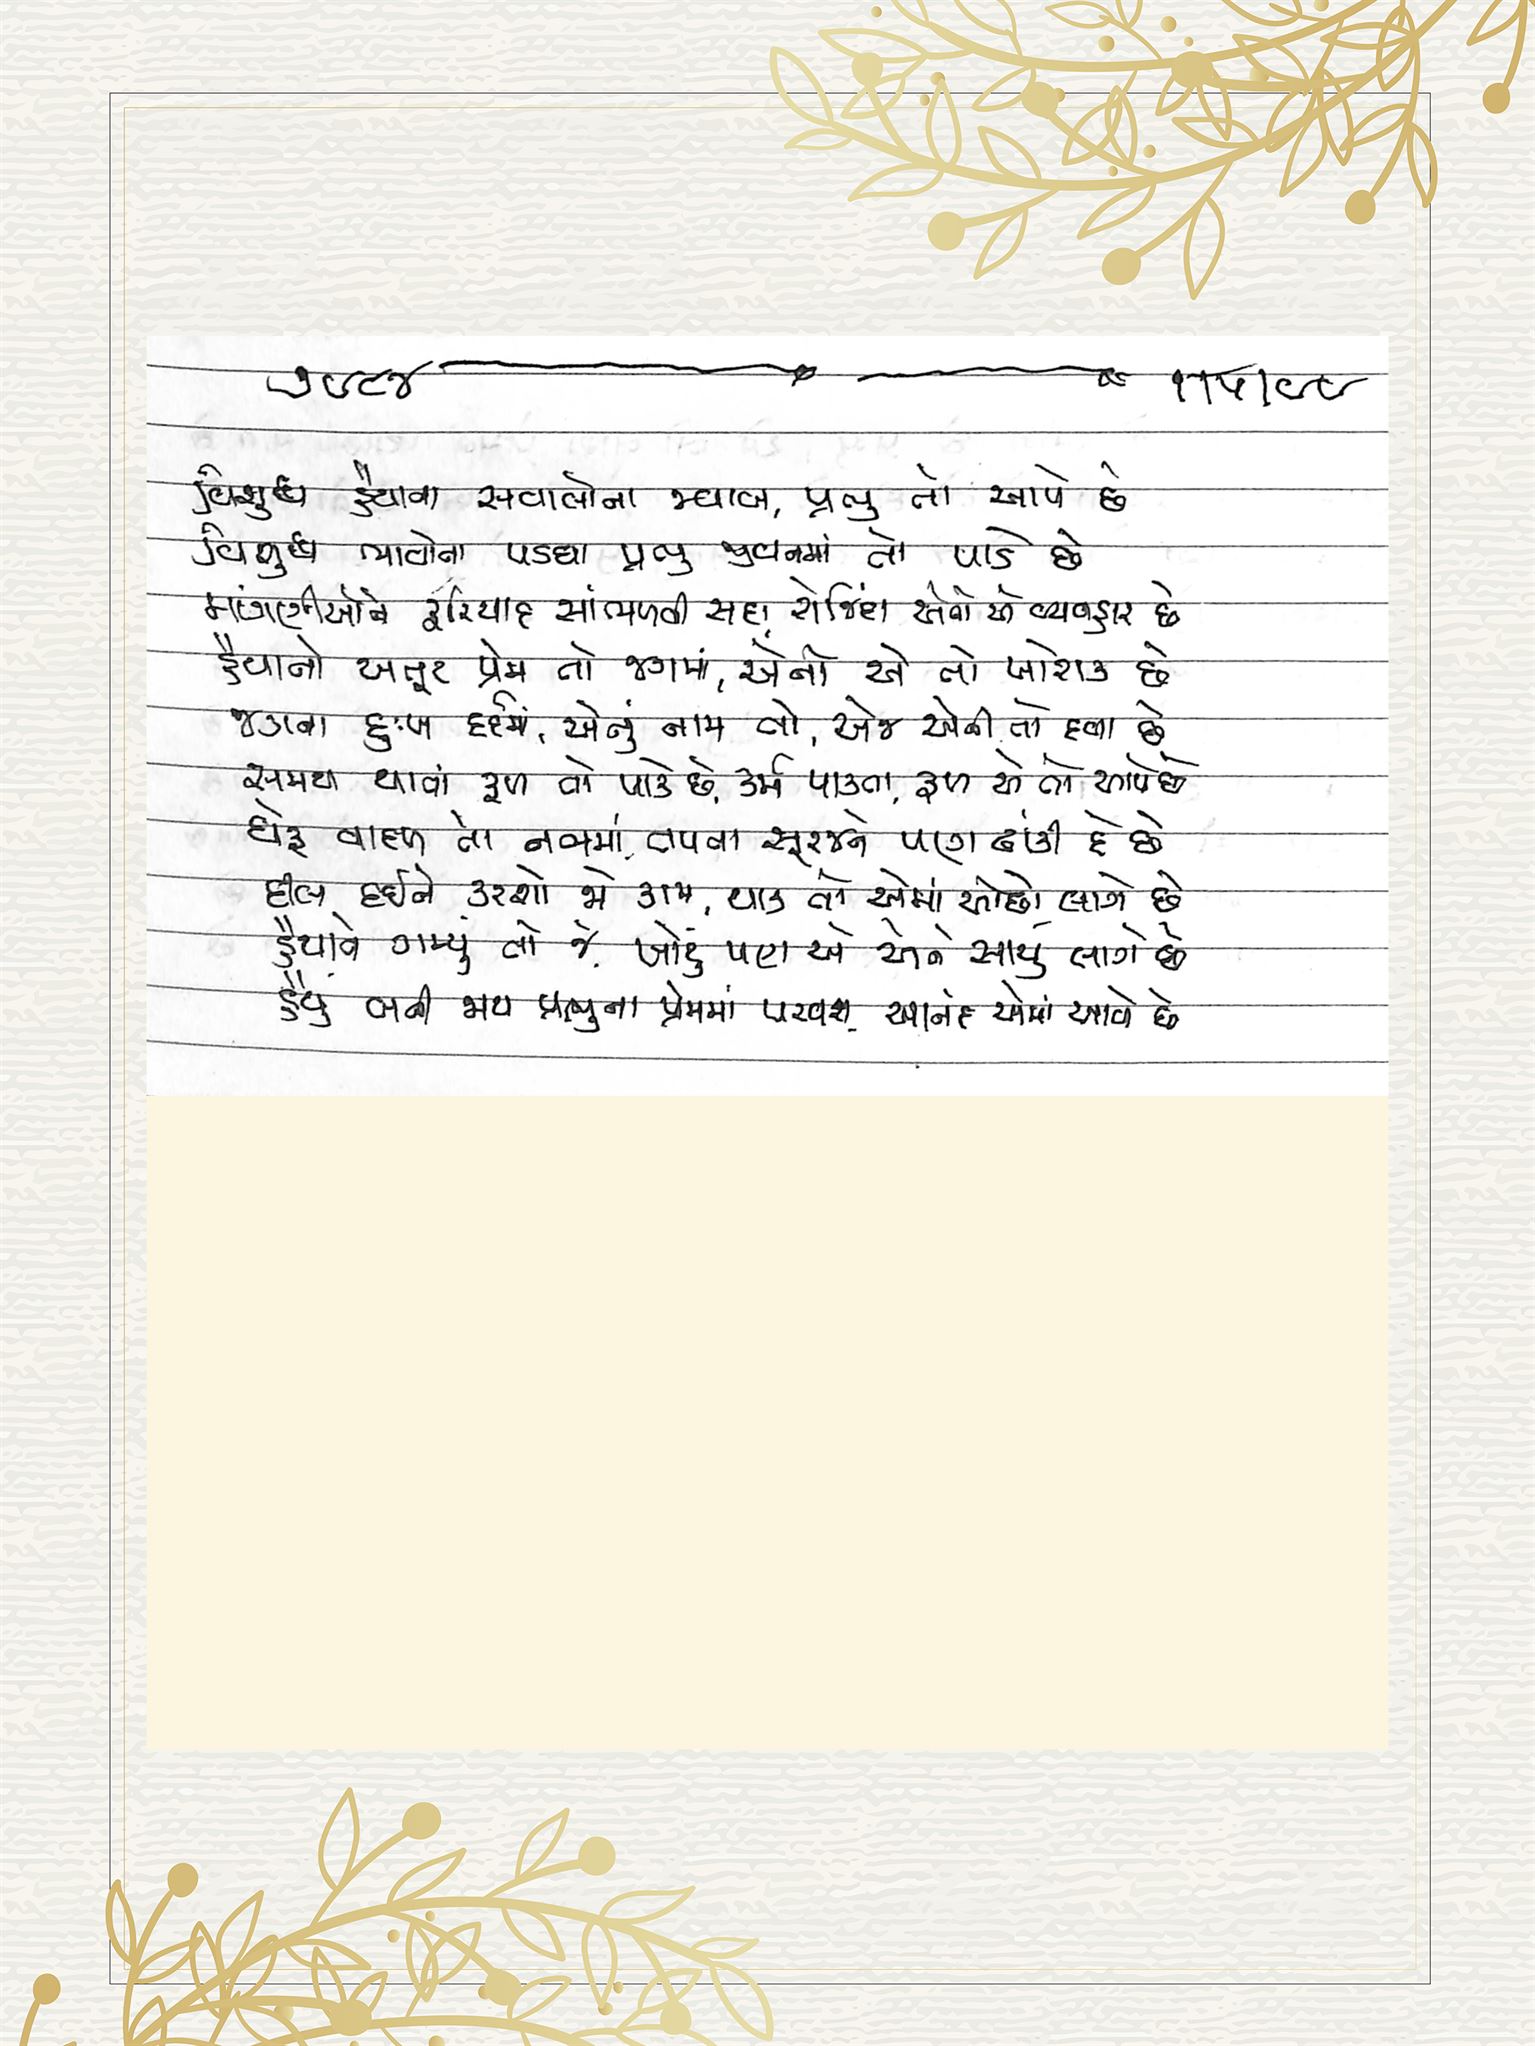 ૭૯૮૪ ૧૧૫।૯૯
વિશુધ્ધ હૈયાના સવાલોના જવાબ, પ્રભુ તો આપે છે
વિશુધ્ધ ભાવોના પડઘા પ્રભુ જીવનમાં તો પાડે છે
માંગણીઓને ફરિયાદ સાંભળવી સદા, રોજિંદા એનો એ વ્યવહાર છે
હૈયાનો અતૂટ પ્રેમ તો જગમાં, એનો એ તો ખોરાક છે
જગના દુઃખ દર્દમાં, એનું નામ તો, એજ એની તો દવા છે
સમય થાતાં ફળ તો પાકે છે, કર્મ પાકતા, ફળ એ તો આપે છે
ઘેરૂ વાદળ તો નભમાં, તપતા સૂરજને પણ ઢાંકી દે છે
દીલ દઈને કરશો જો કામ, થાક તો એમાં ઓછો લાગે છે
હૈયાને ગમ્યું તો જે, ખોટું પણ એ એને સાચું લાગે છે
હૈયું બની જાય પ્રભુના પ્રેમમાં પરવશ, આનંદ એમાં આવે છે